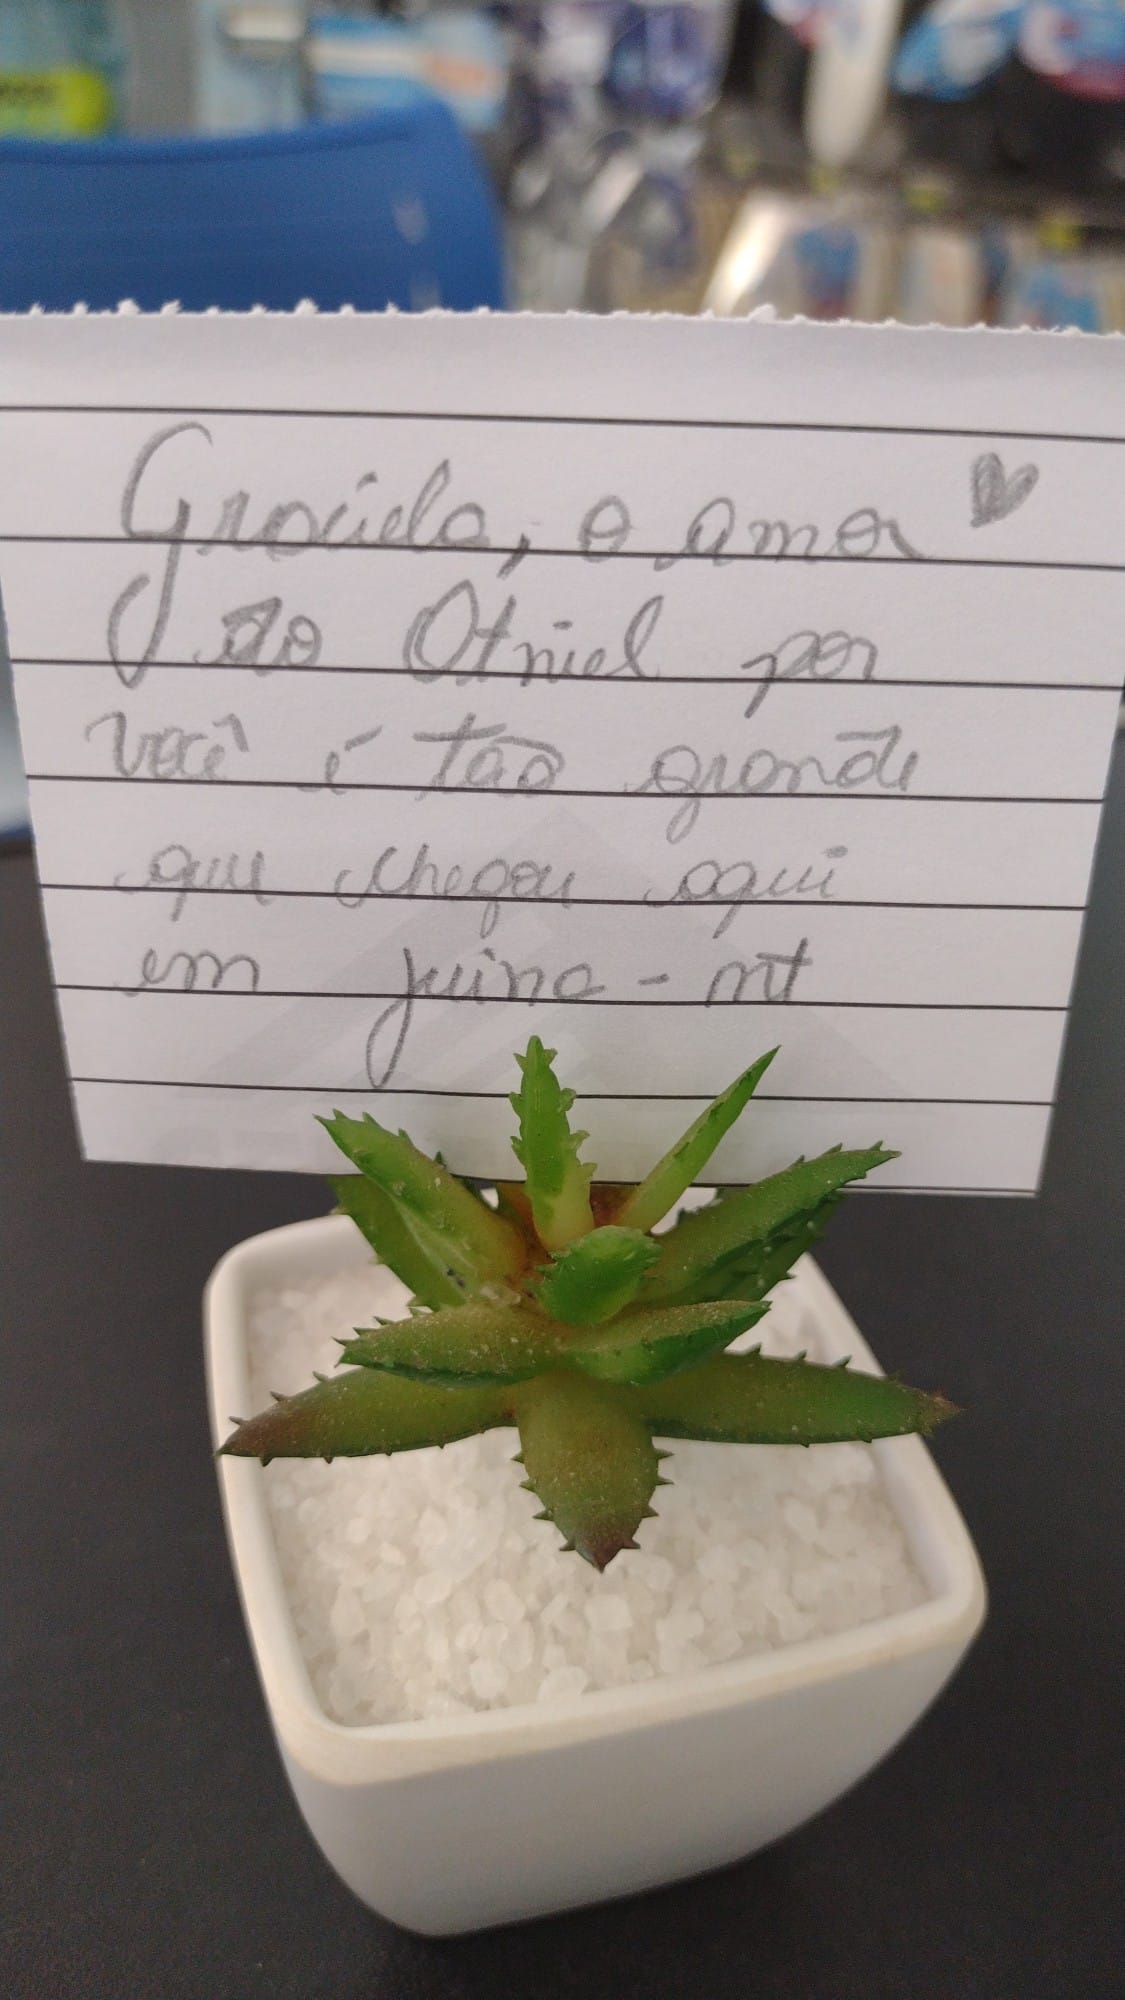 Graciela, o amor
do Otniel por
você é tão grande
que chegou aqui
em juina - mt